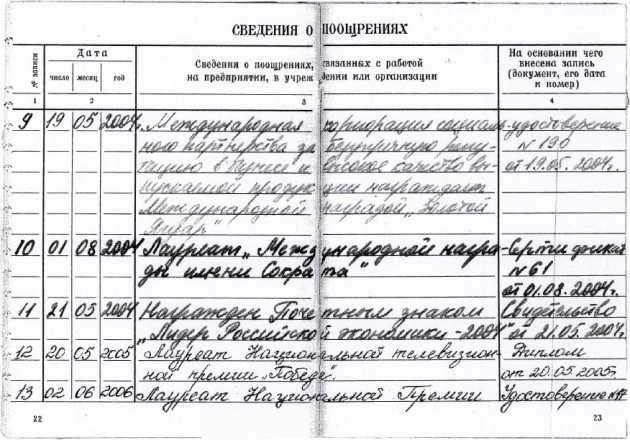 СВЕДЕНИЯ О ПООЩРЕНИЯХ
№ записи
Дата
число месяц год
Сведения о поощрениях, связанных с работой
на предприятии, в учреждении или организации
На основании чего
внесена запись
(документ, его дата
и номер)
1 2 3 4
9 19 05 2004г. Международная корпорация социаль- удостоверение
ного партнерства за безупречную репу- N 190
тацию в бизнесе и высокое качество вы- от 19.05.2004г.
пускаемой продукции награждает
Международной наградой „Золотой
Янтарь"
10 01 08 2004 Лауреат „Международной награ- Сертификат
ды имени Сократа" N 61
от 01.08.2004г.
11 21 05 2004 Награжден Почетным знаком Свидетельство
„Лидер Российской экономики-2004" от 21.05.2004г.
12 20 05 2005 Лауреат Национальной телевизион- Диплом
ной премии „Победа". от 20.05.2005г.
13 02 06 2006 Лауреат Национальной Премии Удостоверение
22 23